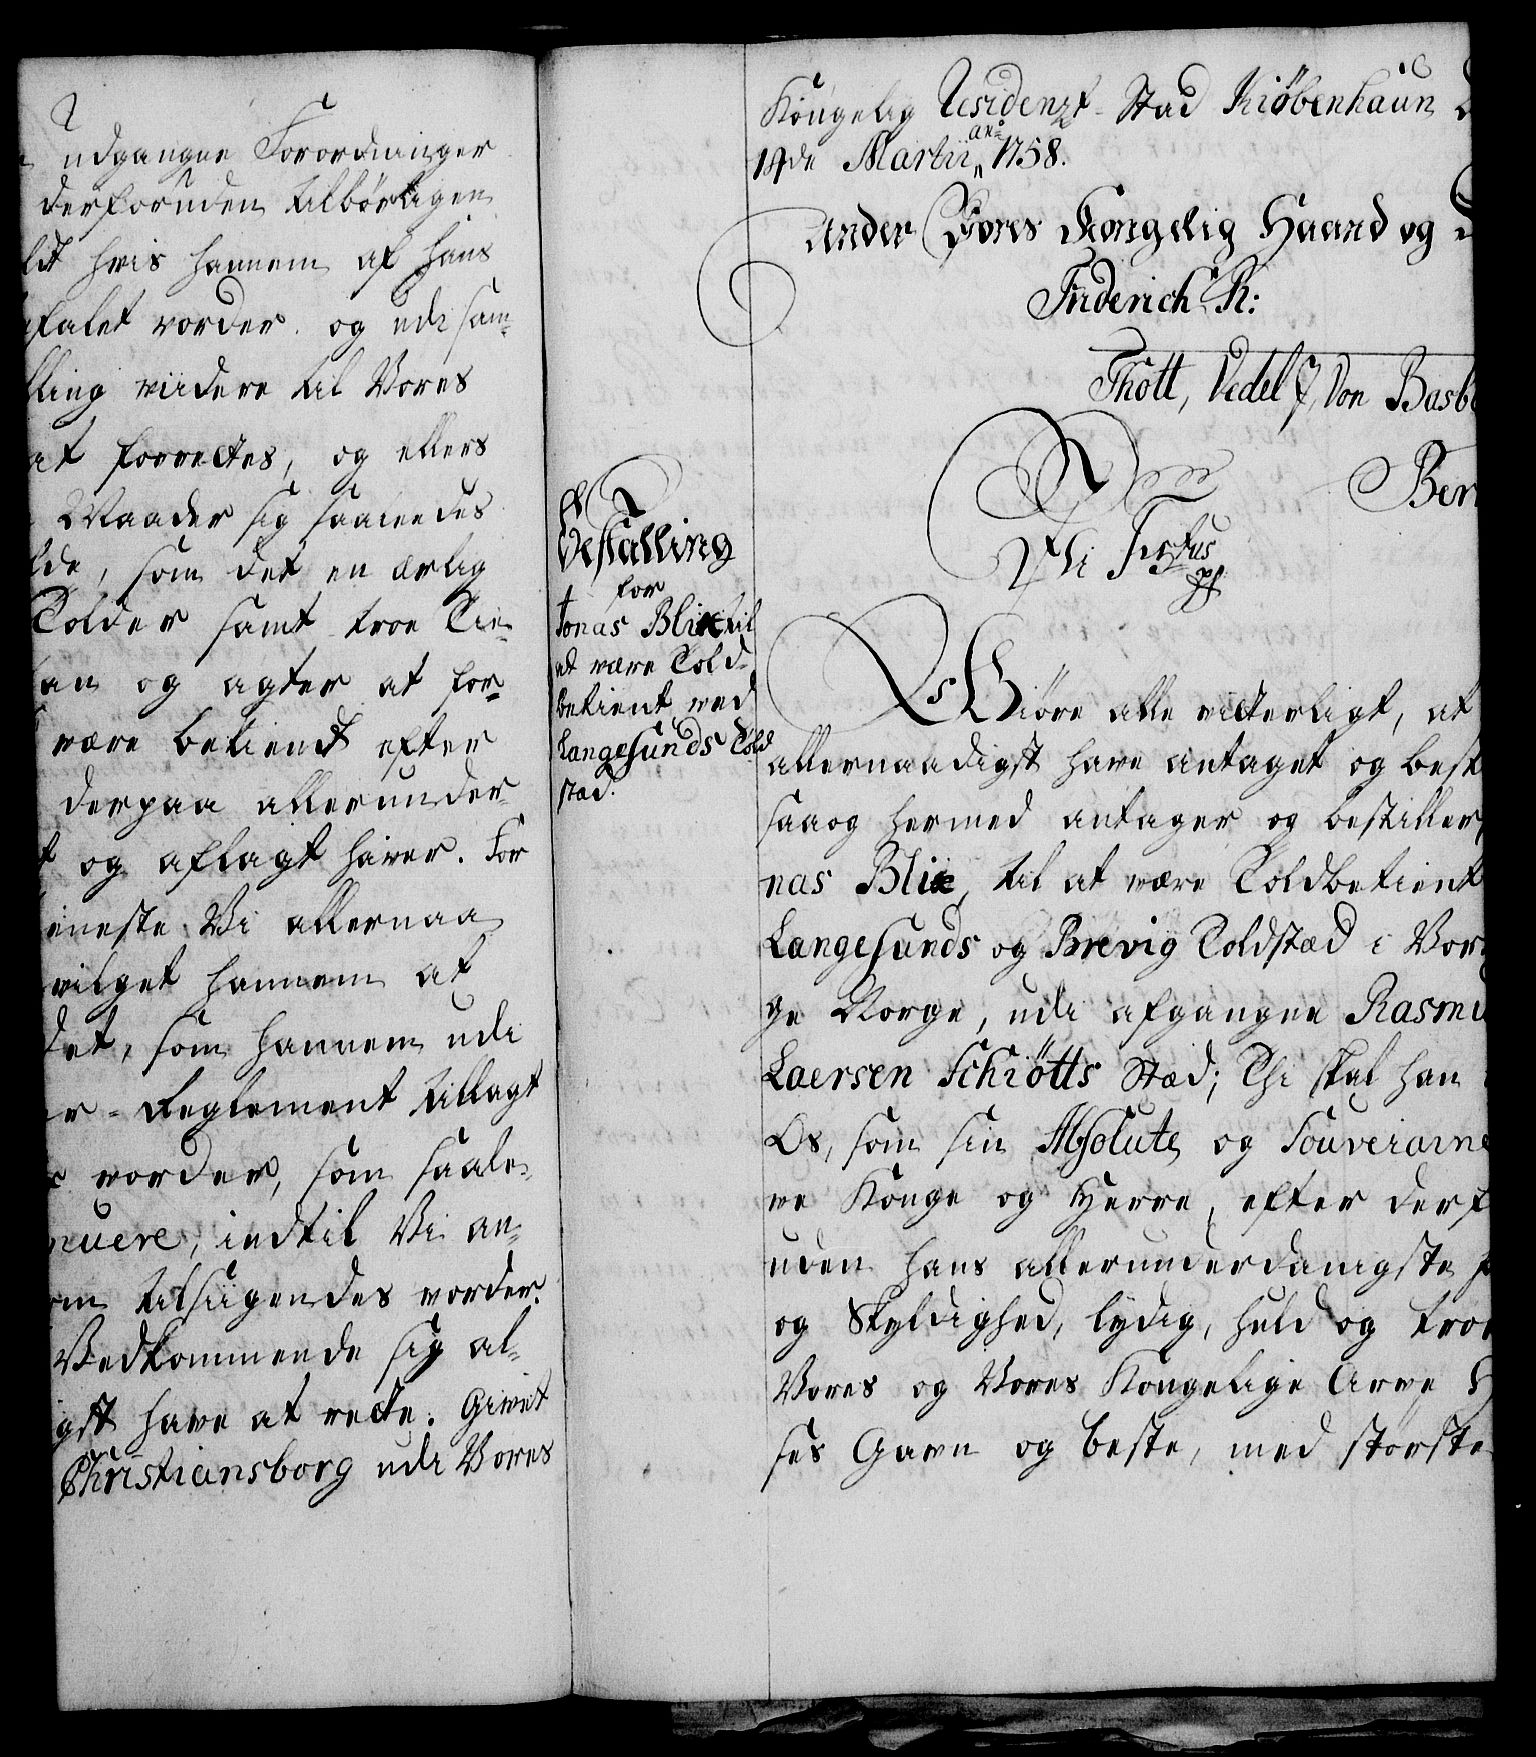 udgangne Forordninger
derforuden tilbørligen
hvis hannem af Hans
befalet vorder. og udi sam-
ling viidere til Vores
at forrettes, og ellers
Maader sig saaledes
som det en ærlig
Tolder samt troe Tie-
og agter at for-
være betiendt efter
derpaa allerunder-
og aflagt haver. For
Vi allernaa-
vilget hannem at
som hannem udi
Reglement tillagt
vorder, som saale-
indtil Vi an-
tilsiigendes vorder.
Vedkommende sig al-
have at rette. Givet
Christiansborg udi Vores
Kongelig Residentz-Stad Kiøbenhaun
14de Martii ao 1758.
Under Vores Kongelig Haand og
Friderich R:
Thott, Vedel J, Von
Bestalling
for
Jonas Blix til
at være Told-
betient ved
Langesunds Told
stæd.
Giøre alle vitterligt, at
allernaadigst have antaget og best
saaog hermed antager og bestiller
nas Blix, til at være Toldbetient
Langesunds og Brevig Toldstæd i Vor
ge Norge, udi afgangne Rasmu
Laersen Schiøtts Stæd; Thi skal han
Os, som sin Absolute og Souveraine
ve Konge og Herre, efter derf
uden hans allerunderdanigste
og Skyldighed, lydig, huld og troe
Vores og Vores Kongelige Arve H
ses Gavn og beste, med største